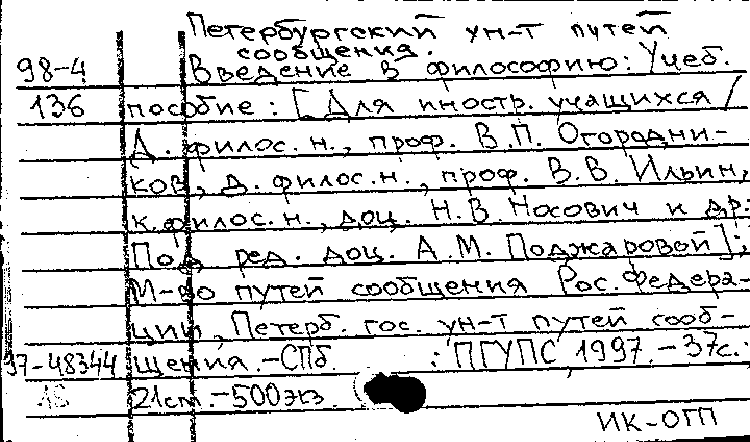 Петербургский ун-т путей
сообщения.
98-4 Введение в философию: Учеб.
136 пособие: [Для иностр. учащихся /
Д. филос. н., проф. В.П. Огородни-
ков, д. филос. н., проф. В.В. Ильин,
к. филос. н., доц. Н.В. Носович и др.;
Под ред. доц. А.М. Поджаровой];
М-во путей сообщения Рос. Федера-
ции, Петерб. гос. ун-т путей сооб-
97-48344 щения. - СПб. : ПГУПС, 1997. - 37с.:
21см. - 500экз.
ИК-ОГП